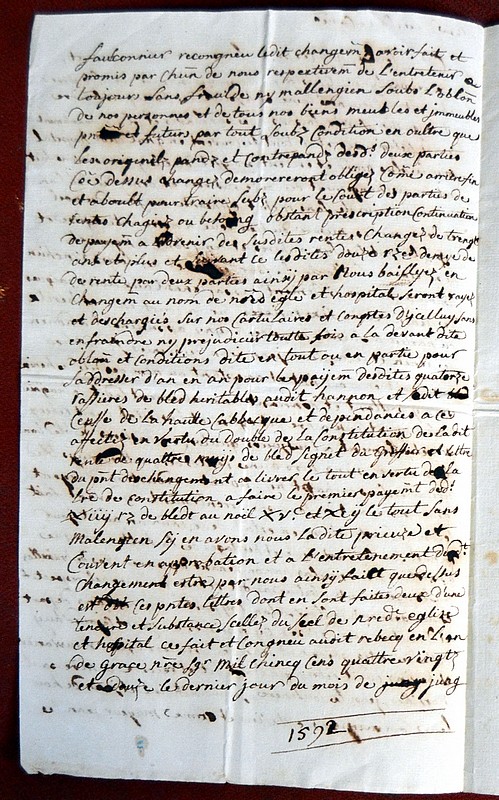 fauconnier recongneu ledit changemt avoir fait et
promis par chun de nous respectivemt de L'entretenir et
toujours sans fraulde ny mallengien soubs L'oblon
de nos personnes et de tous nos biens meubles et immeubles
pnts et futurs par tout soubz Condition en oultre que
les originelz pands et Contrepands desd. deux parties
Coe dessus change demoreront obligez Come arriere fin
et about pour traire subz pour le sourt des parties de
rentes chagies ou besoing obstant prescription Continuation
de payem a obtenir de susdites rentes Changez de trengte
ans et plus et livrant ce lesdites douze rzes demye de
de rente par deux parties ainsy par Nous baillyez en
Changem au nom de nored egle et hospital seront rayez
et deschargies sur nos Cartulaires et Comptes D'jcelluy sans
enfraindre ny prejudicier toutte fois a la devant dite
oblon et Conditions dite en tout ou en partie pour
s'addresser d'an en an pour le payem desdites quatorze
rassiers de bled heritables audit hanpon et ledit
Censse de la haulte et dependances a ce
affectez en vertu du double de La Constitution de Ladit
rente de quattre muys de bled signet du Greffier et lettre
du pnt deschangement a livrez le tout en vertu de la
tre de constitution a faire le premier payemt desd.
xiiij rz de bledt au noil XVc et XCij le tout sans
Malengien Sy en avons nous Ladite prieuse et
Couvent en approbation et a L'entretenement dudt
Changement estre par nous ainsy faict que dessus
est dit ces pntes lettres dont en sont faites deux d'une
teneure et substance scellez du seel de nredt eglise
et hospital ce fait et Congneu audit rebecq en L'an
de Grace nre Sgr Mil chincq Cens quattre vingtz
et douze le dernier jour du mois de jung
1592